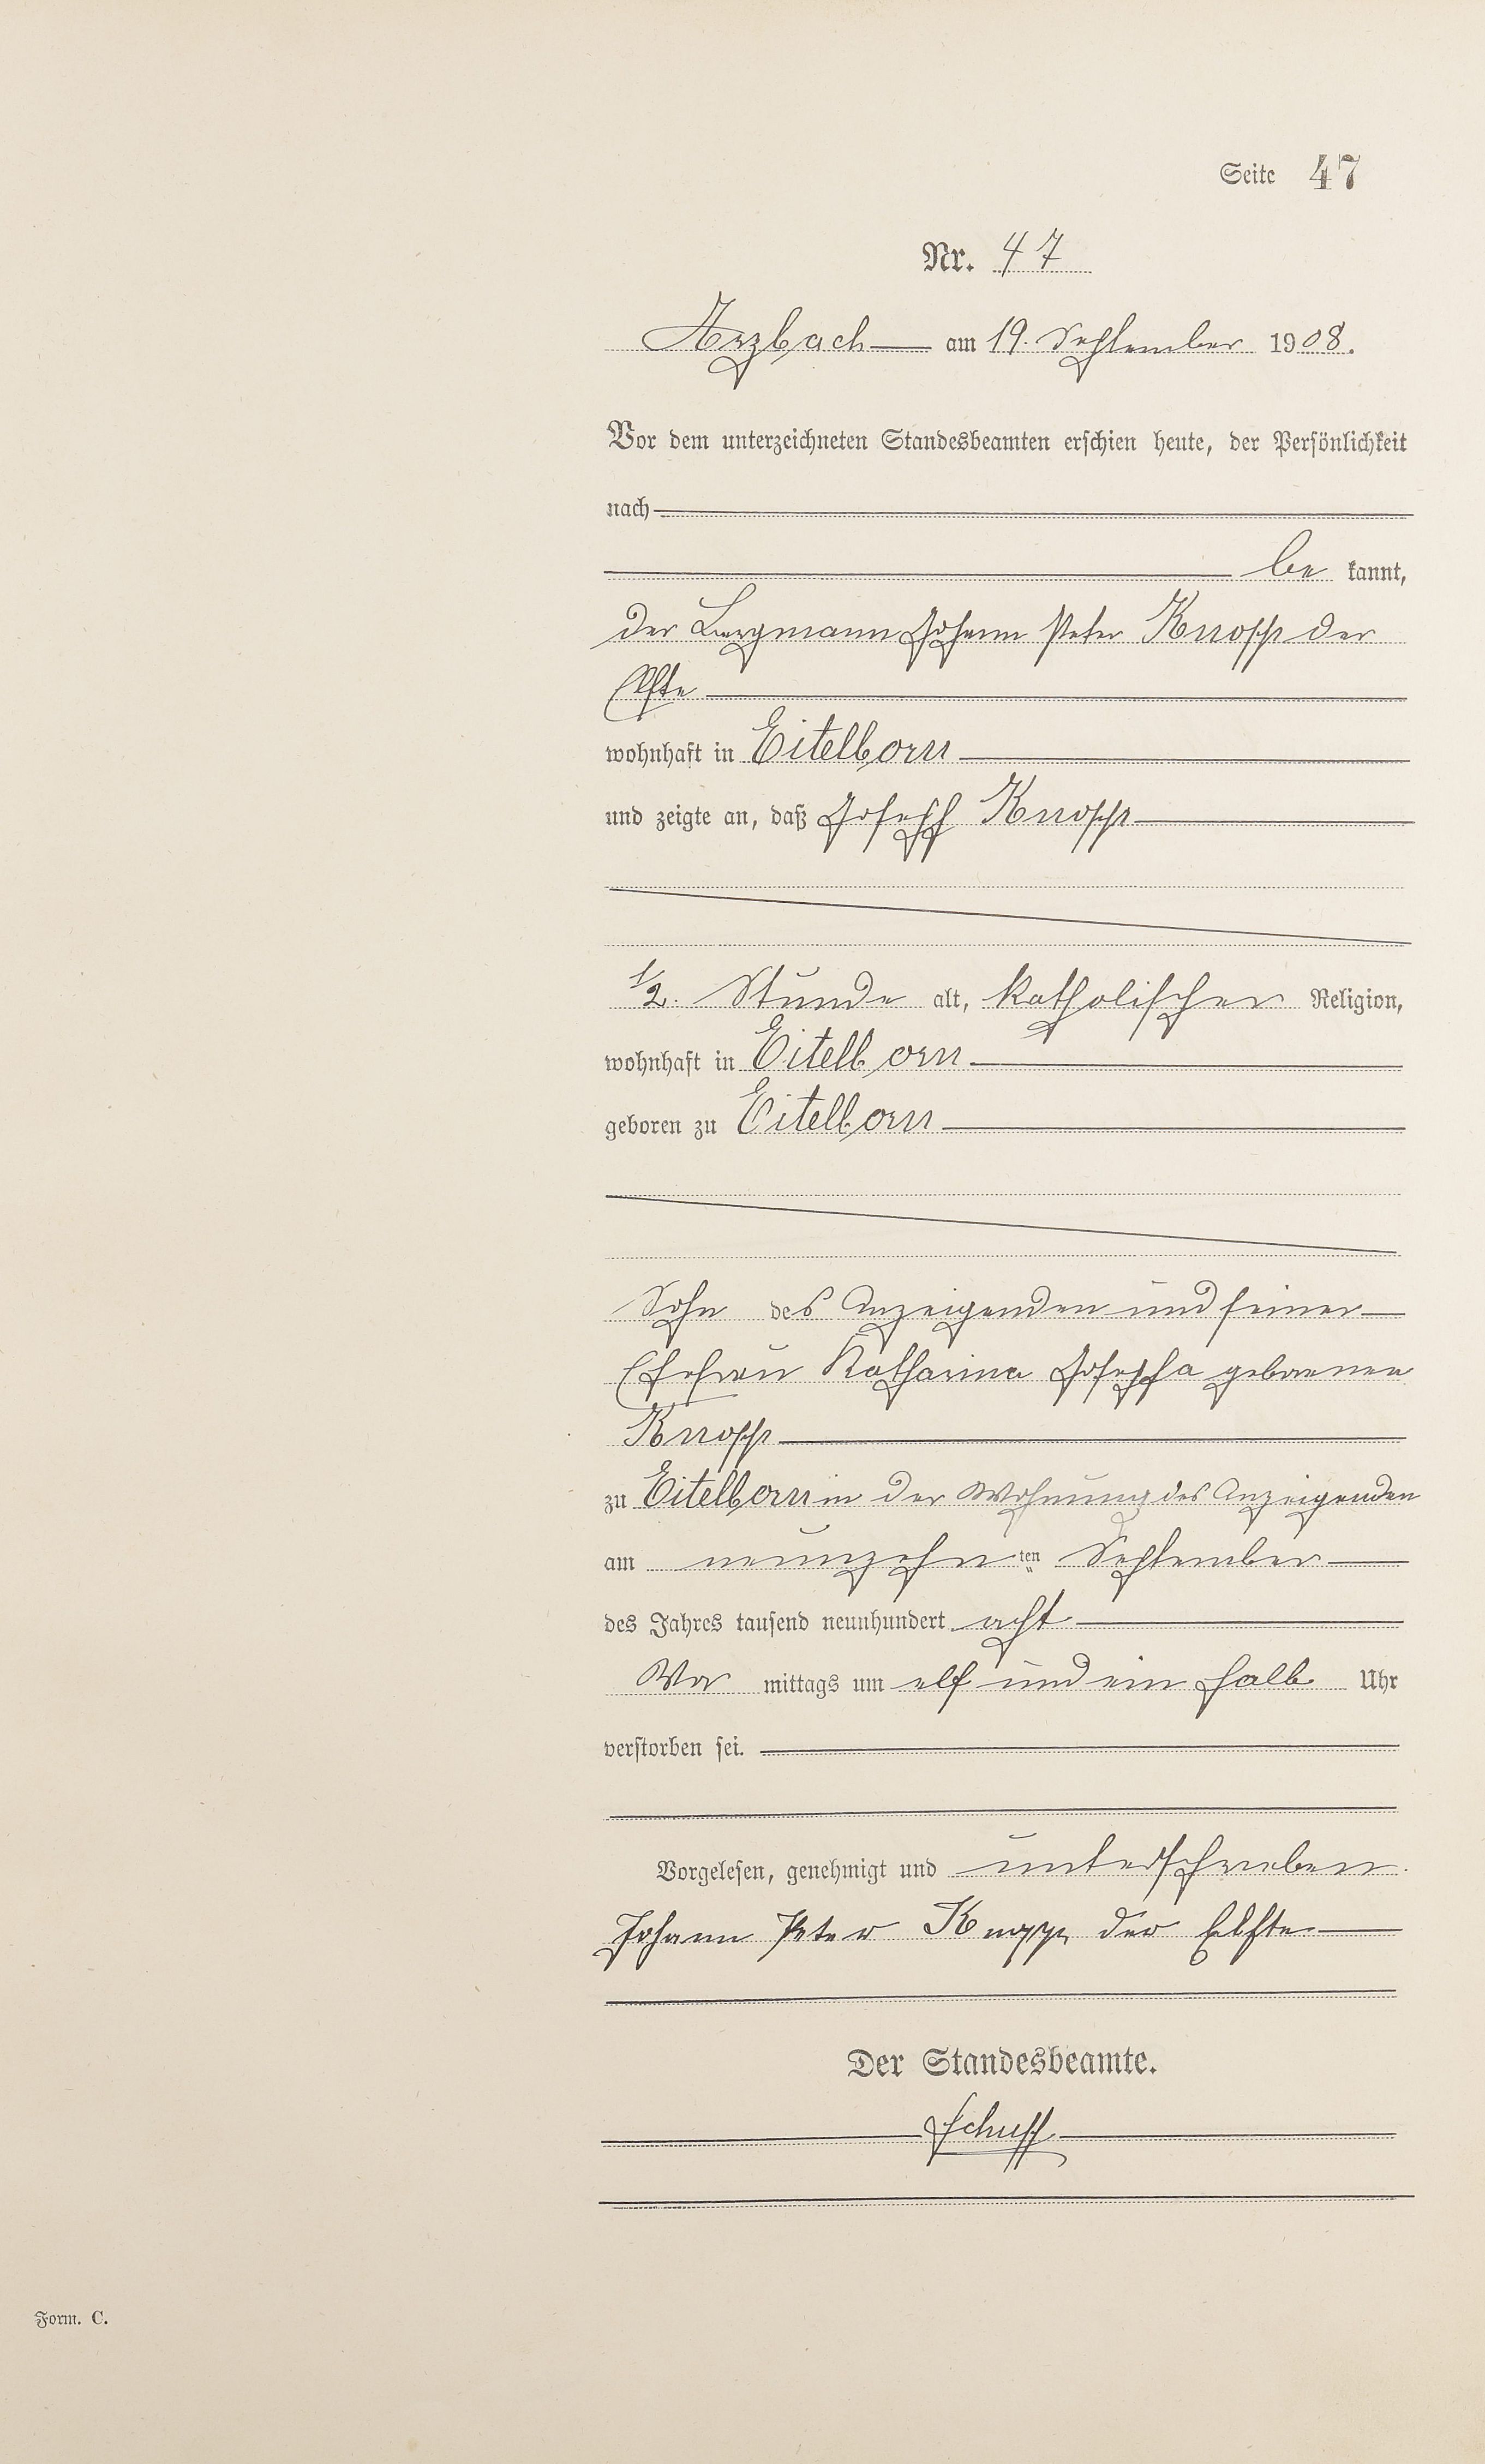 Seite 47
Nr. 47
Arzbach am 19. September 1908.
Vor dem unterzeichneten Standesbeamten erschien heute, der Persönlichkeit
nach
be kannt,
der Bergmann Johann Peter Knopp der
Elfte
wohnhaft in Eitelborn
und zeigte an, daß Joseph Knopp
1/2 Stunde alt, katholischer Religion,
wohnhaft in Eitelborn
geboren zu Eitelborn
Sohn des Anzeigenden und seiner
Ehefrau Katharina Josepha geborenen
Knopp
zu Eitelborn in der Wohnung des Anzeigenden
am neunzehn ten September
des Jahres tausend neunhundert acht
Vor mittags um elf und ein halb Uhr
verstorben sei.
Vorgelesen, genehmigt und unterschrieben.
Johann Peter Knopp der Elfte
Der Standesbeamte.
Form. C.